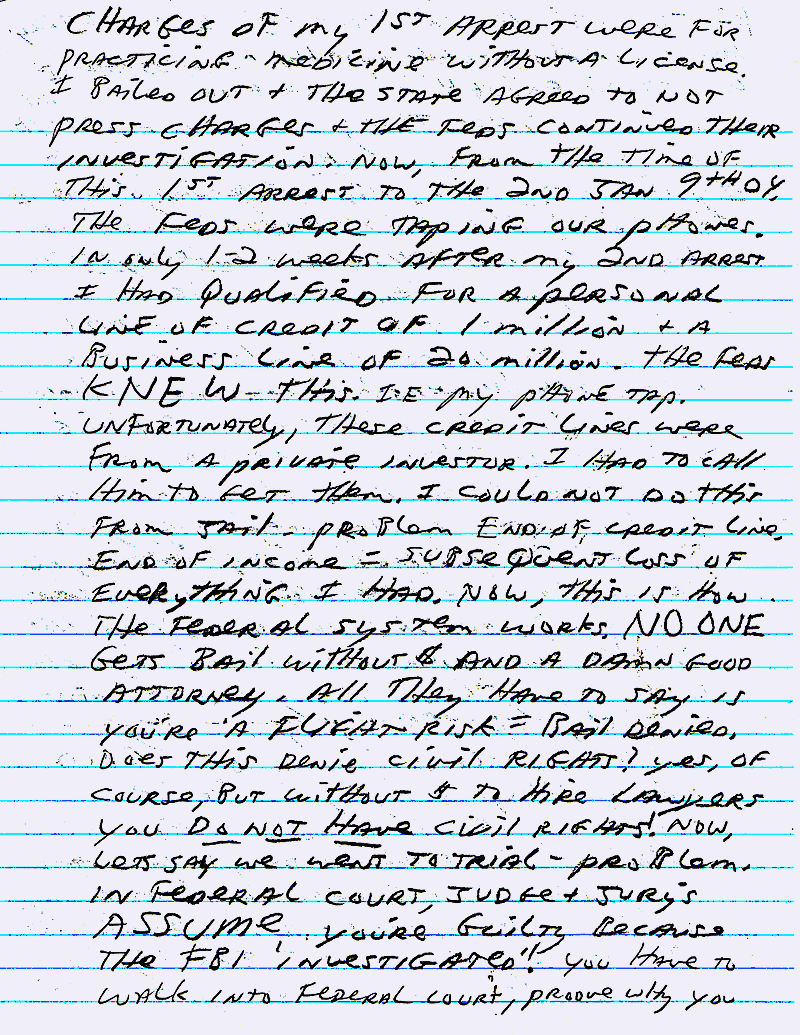 CHARGES OF my 1ST ARREST WERE FOR
PRACTICING MEDICINE WITHOUT A LICENSE.
I BAILED OUT + THE STATE AGREED TO NOT
PRESS CHARGES + THE FEDS CONTINUED THEIR
INVESTIGATION. NOW, FROM THE TIME OF
THIS 1ST ARREST TO THE 2ND JAN 9TH 04,
THE FEDS WERE TAPING OUR PHONES.
IN ONLY 1-2 WEEKS AFTER MY 2ND ARREST
I HAD QUALIFIED FOR A PERSONAL
LINE OF CREDIT OF 1 MILLION + A
BUSINESS LINE OF 20 MILLION - THE FEDS
KNEW THIS. I.E MY PHONE TAP.
UNFORTUNATELY, THESE CREDIT LINES WERE
FROM A PRIVATE INVESTOR. I HAD TO CALL
HIM TO GET THEM. I COULD NOT DO THIS
FROM JAIL - PROBLEM END OF CREDIT LINE,
END OF INCOME = SUBSEQUENT LOSS OF
EVERYTHING I HAD. NOW, THIS IS HOW
THE FEDERAL SYSTEM WORKS. NO ONE
GETS BAIL WITHOUT $ AND A DAMN GOOD
ATTORNEY. ALL THEY HAVE TO SAY IS
YOU'RE A FLIGHT RISK = BAIL DENIED.
DOES THIS DENIE CIVIL RIGHTS? YES, OF
COURSE, BUT WITHOUT $ TO HIRE LAWYERS
YOU DO NOT HAVE CIVIL RIGHTS! NOW,
LETS SAY WE WENT TO TRIAL - PROBLEM.
IN FEDERAL COURT, JUDGE + JURY'S
ASSUME YOU'RE GUILTY BECAUSE
THE FBI 'INVESTIGATED'! YOU HAVE TO
WALK INTO FEDERAL COURT, PROOVE WHY YOU